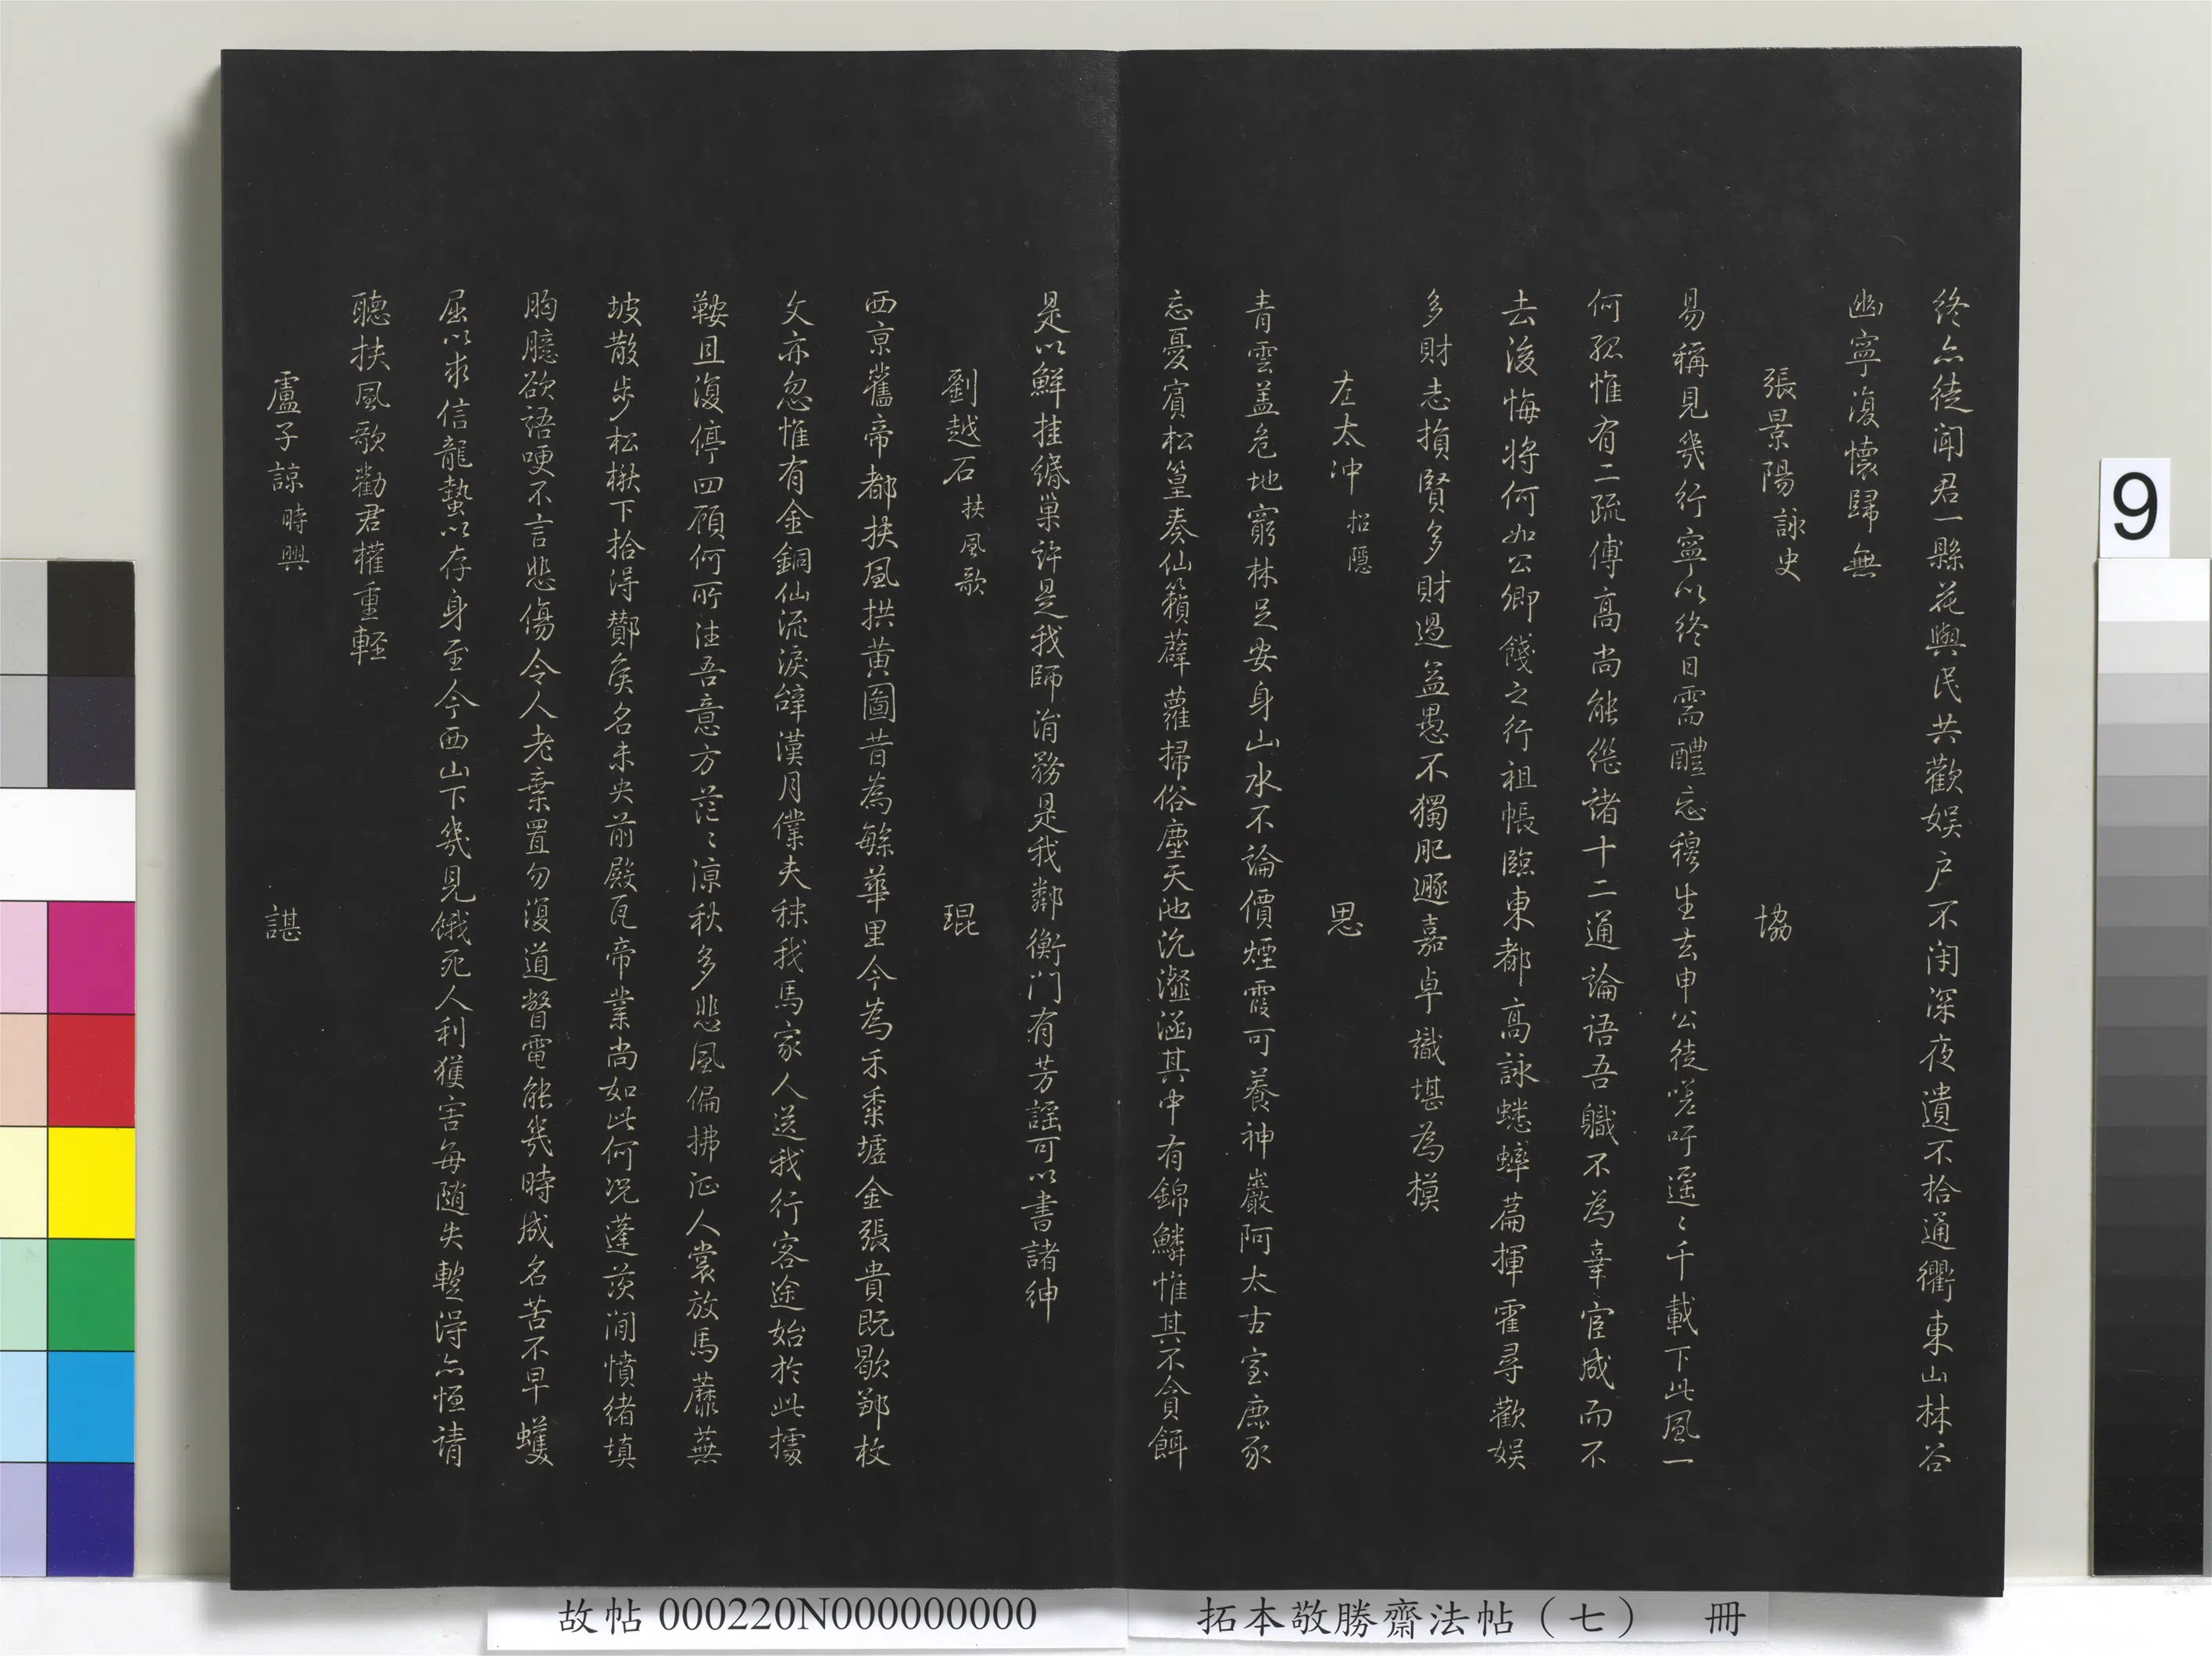 終亦徒聞君一縣花與民共歡娛戶不閉深夜遺不拾通衢東山林谷
幽寧復懷歸無
張景陽詠史 協
易稱見幾行寧以終日需醴忘穆生去申公徒嗟吁遥〻千載下此風一
何孤惟有二疏傅高尚能繼諸十二通論語吾職不為辜宦成而不
去後悔將何如公卿餞之行祖帳臨東都高詠蟋蟀篇揮霍尋歡娛
多財志損賢多財過益愚不獨肥遯嘉卓識堪為模
左太沖招隱 思
青雲蓋危地窮林足安身山水不論價煙霞可養神巖阿太古室鹿豕
忘憂賓松篁奏仙籟薜蘿掃俗塵天池沆瀣涵其中有錦鱗惟其不貪餌
是以鮮挂緡巢許是我師涓務是我鄰衡門有芳謡可以書諸紳
劉越石扶風歌 琨
西京舊帝都扶風拱黄圖昔為繁華里今為禾黍墟金張貴既歇鄒枚
文亦忽惟有金銅仙流淚辭漢月僕夫秣我馬家人送我行客途始於此據
鞍且復停四顧何所往吾意方茫〻凉秋多悲風偏拂征人裳放馬蘼蕪
坡散步松楸下拾得酇侯名未央前殿瓦帝業尚如此何况蓬茨間憤緒填
胸臆欲語哽不言悲傷令人老棄置勿復道瞥電能幾時成名苦不早蠖
屈以求信龍蟄以存身至今西山下幾見餓死人利獲害每随失蹔得亦恒請
聽扶風歌勸君權重輕
盧子諒時興 諶
9
故帖000220N000000000
拓本敬勝齋法帖（七） 冊